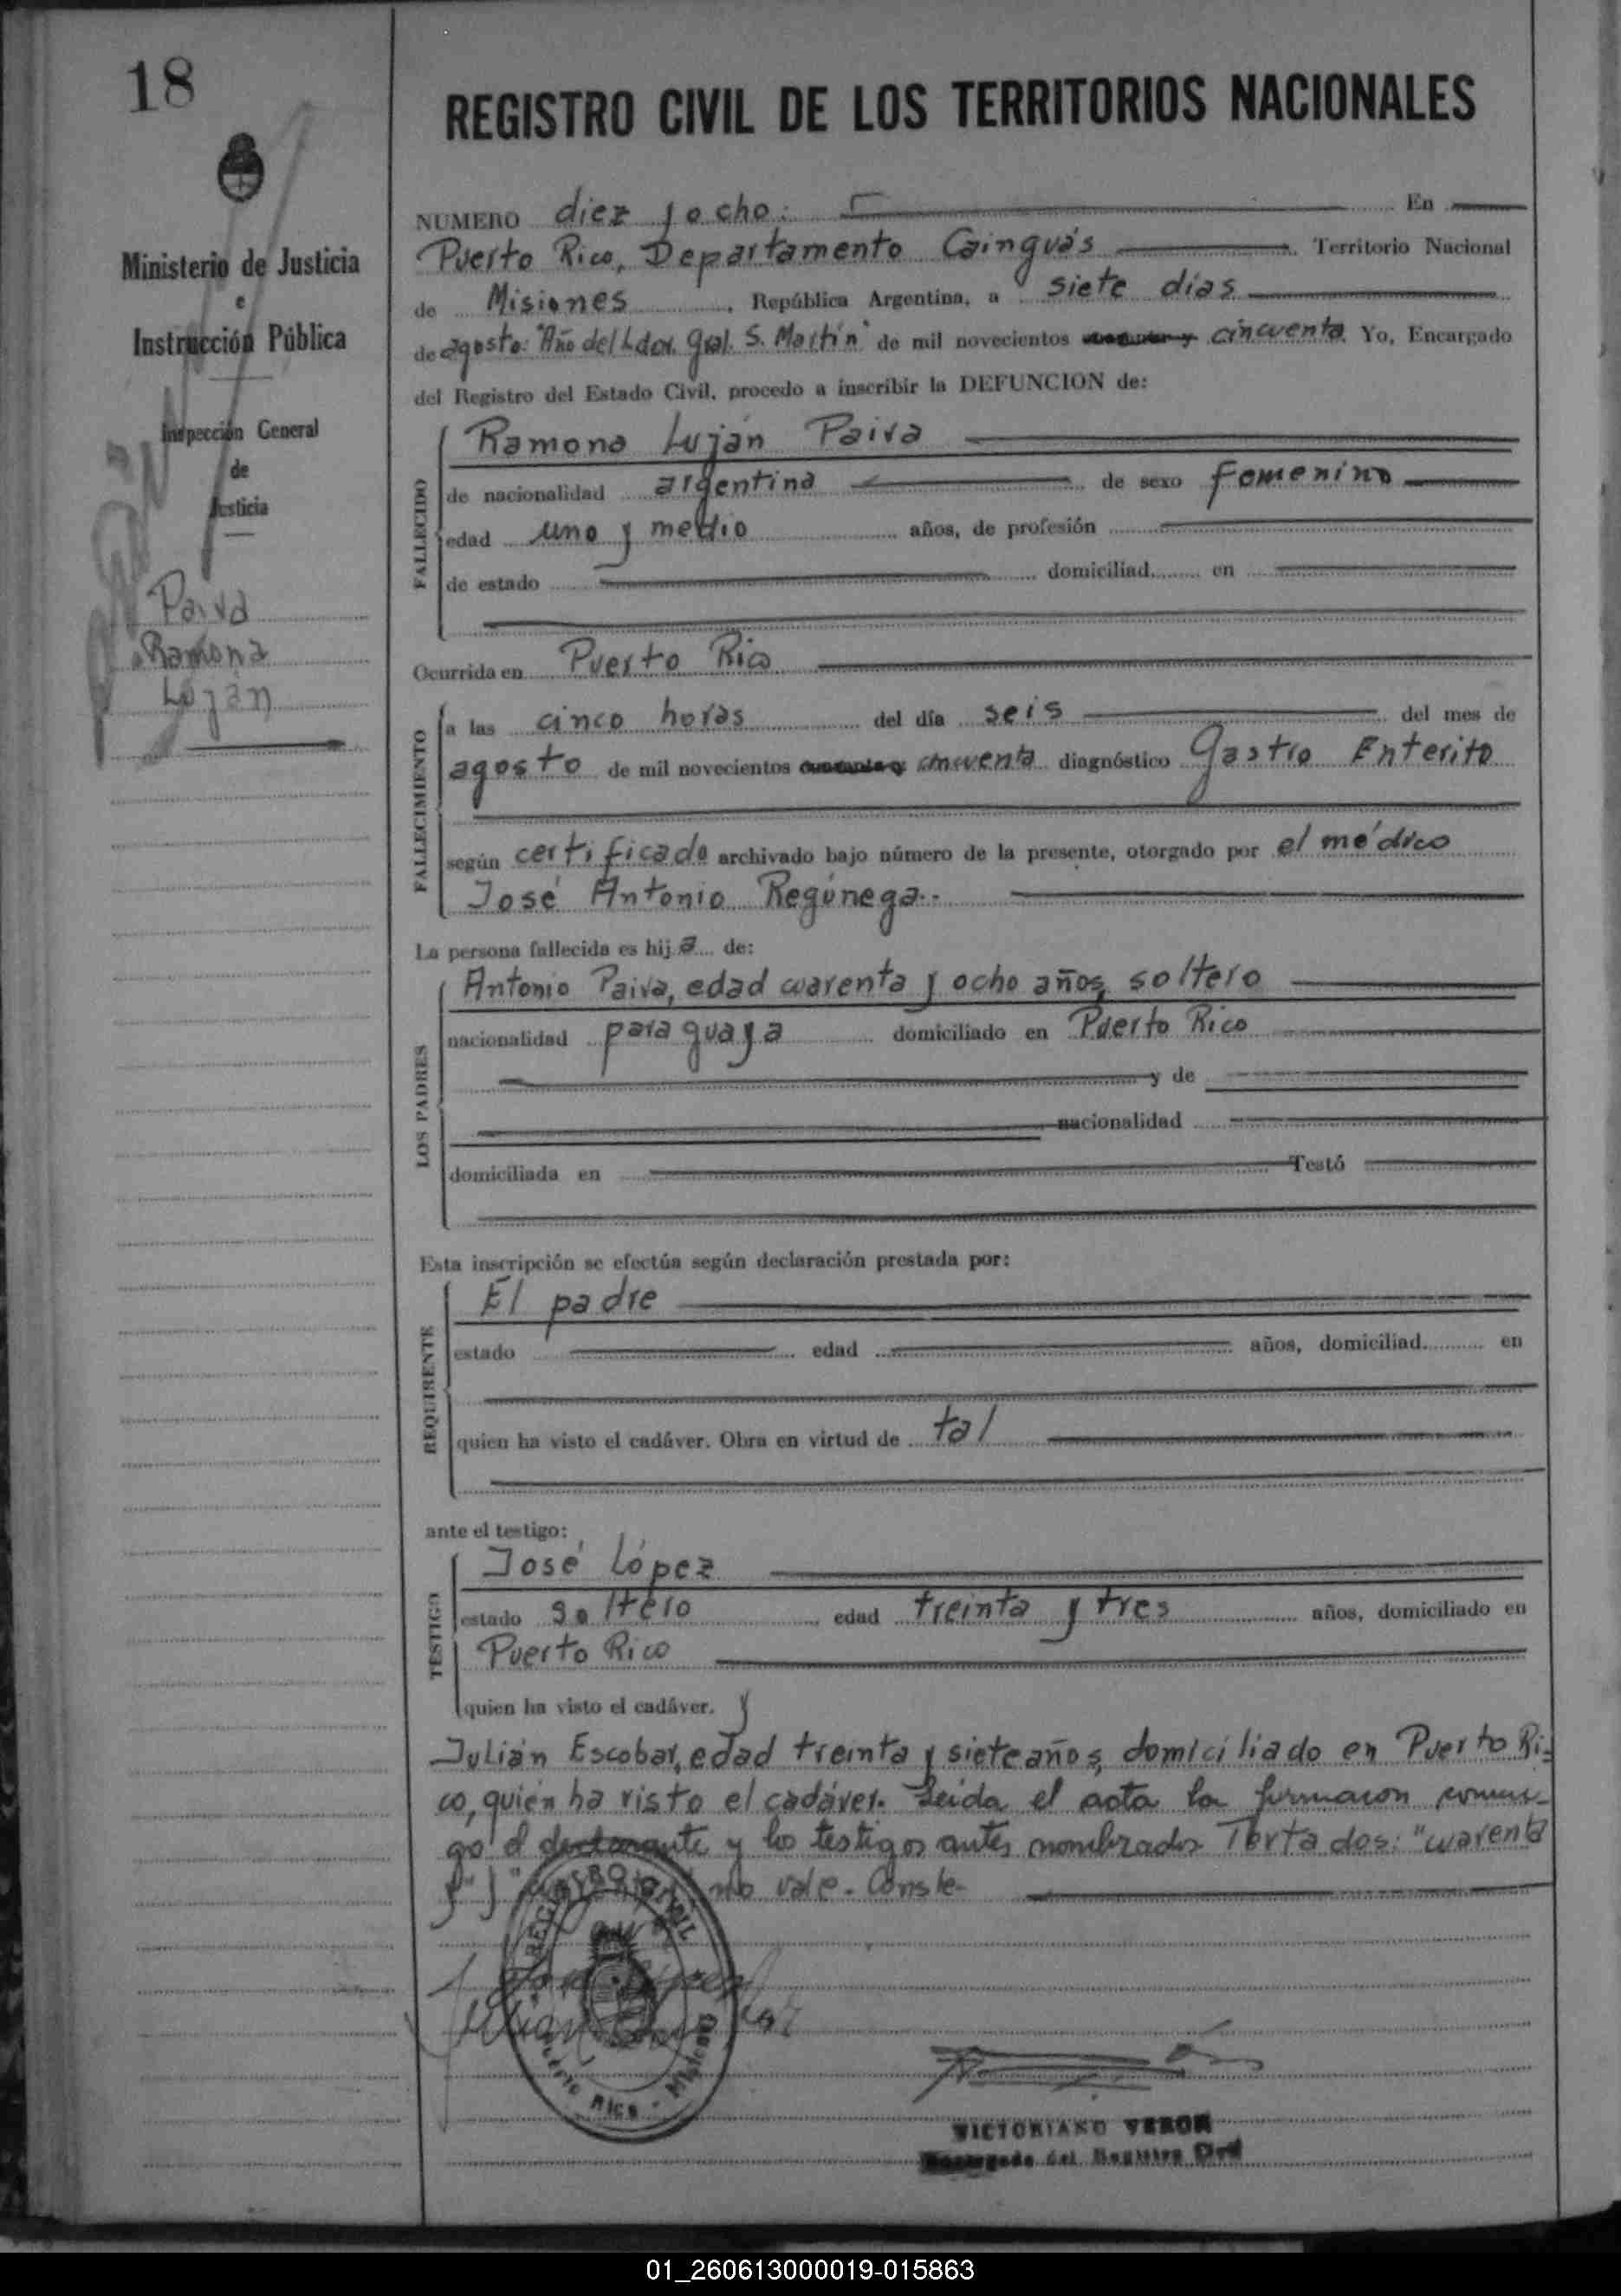 18
REGISTRO CIVIL DE LOS TERRITORIOS NACIONALES
Ministerio de Justicia
e
Instrucción Pública
Inspección General
de
Justicia
Paiva
Ramona
Luján
NUMERO diez y ocho: En
Puerto Rico, Departamento Cainguás Territorio Nacional
de Misiones, República Argentina, a siete días
de agosto "Año del Ldor. Gral. S. Martín" de mil novecientos cincuenta Yo, Encargado
del Registro del Estado Civil, procedo a inscribir la DEFUNCION de:
FALLECIDO
Ramona Luján Paiva
de nacionalidad argentina de sexo femenino
edad uno y medio años, de profesión
de estado domiciliad en
Ocurrida en Puerto Rico
FALLECIMIENTO
a las cinco horas del día seis del mes de
agosto de mil novecientos cuarenta y cincuenta diagnóstico Gastro Enterito
según certificado archivado bajo número de la presente, otorgado por el médico
José Antonio Regúnega.-
La persona fallecida es hija de:
LOS PADRES
Antonio Paiva, edad cuarenta y ocho años, soltero
nacionalidad paraguaya domiciliado en Puerto Rico
y de
nacionalidad
domiciliada en Testó
Esta inscripción se efectúa según declaración prestada por:
REQUIRENTE
El padre
estado edad años, domiciliad en
quien ha visto el cadáver. Obra en virtud de tal
ante el testigo:
TESTIGO
José López
estado soltero edad treinta y tres años, domiciliado en
Puerto Rico
quien ha visto el cadáver. y
Julián Escobar, edad treinta y siete años, domiciliado en Puerto Ri-
co, quién ha visto el cadáver. Leída el acta la firmaron conmi-
go el declarante y los testigos antes nombrados Testados: "cuarenta
y" y no vale. Conste-
REGISTRO CIVIL
Puerto Rico - Misiones
VICTORIANO VERON
Encargado del Registro Civil
01_260613000019-015863